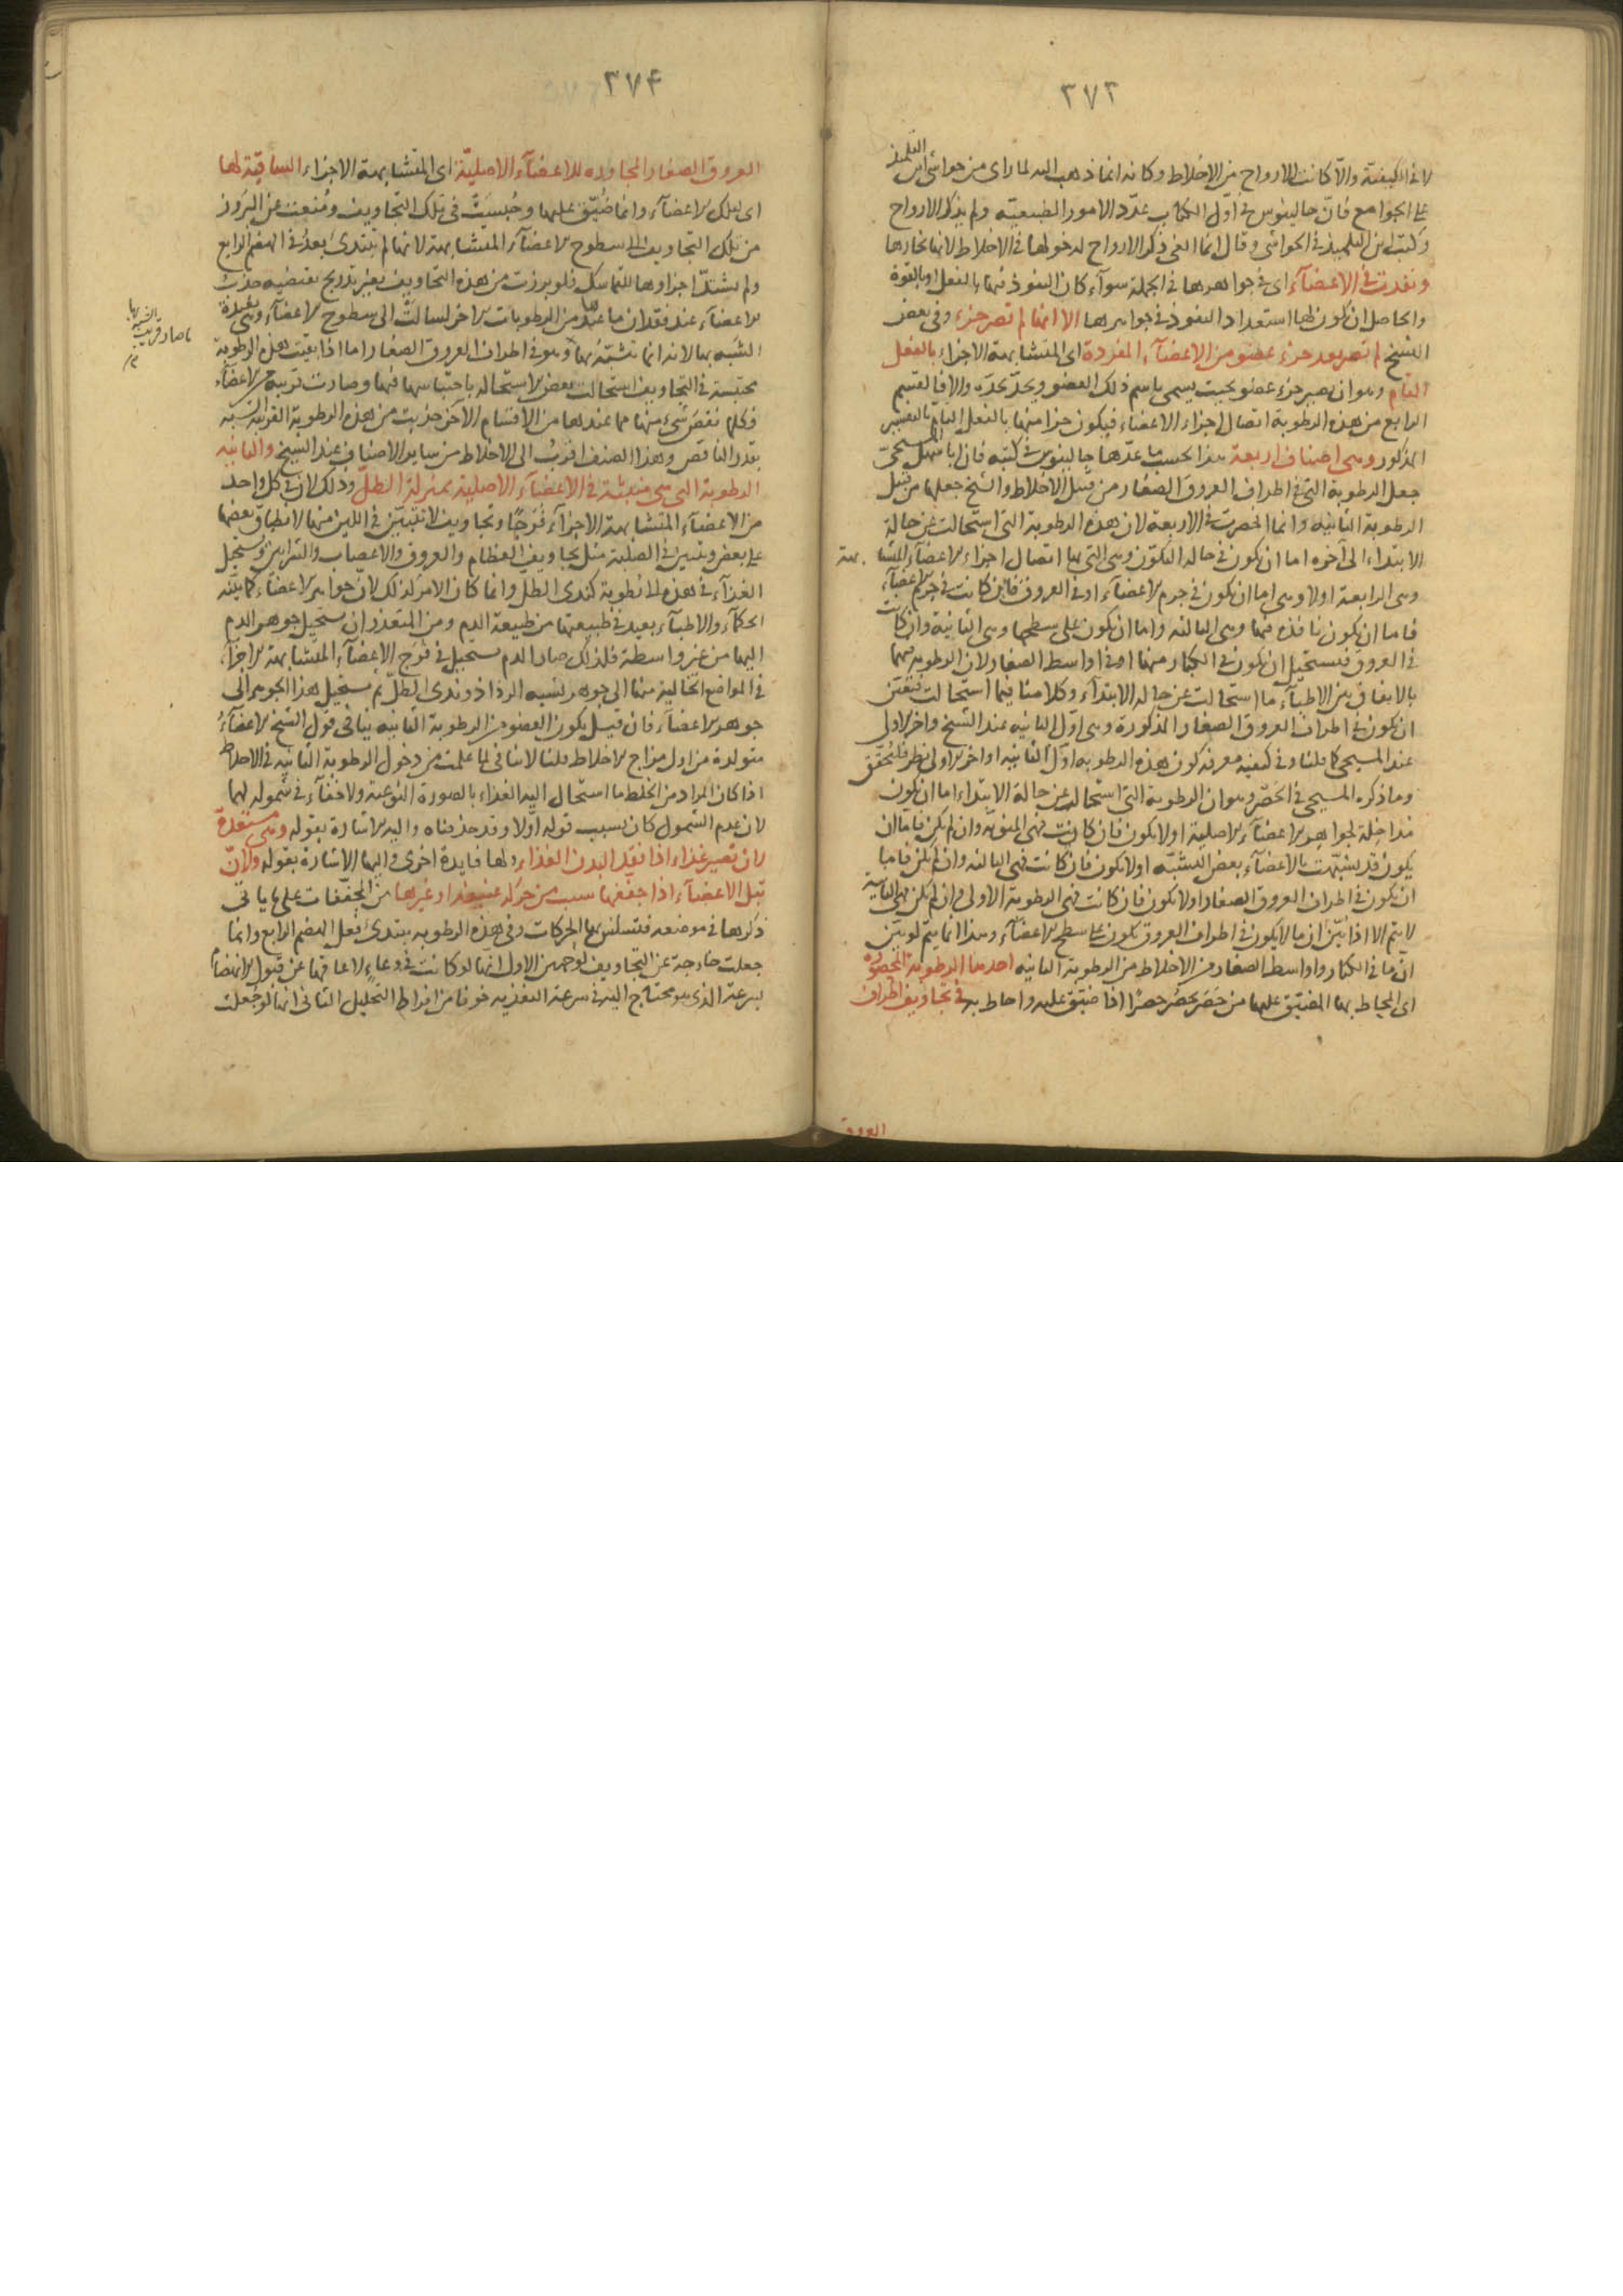 ٣٧٣
لا فى الكيفية والا كانت الارواح من الاخلاط وكانه انما ذهب اليه لما راى من حواشى ابن التلميذ
على الجوامع فان جالينوس فى اول الكتاب عدد الامور الطبيعية ولم يذكر الارواح
وكتب ابن التلميذ فى الحواشى وقال انما الغى ذكر الارواح لدخولها فى الاخلاط لانها بخارها
ونفذت فى الاعضآء اى فى جواهرها فى الجملة سوآء كان النفوذ فيها بالفعل او بالقوة
والحاصل ان يكون لها استعداد النفوذ فى جواهرها الا انها لم تصر جزء وفى بعض
النسخ لم تصر بعد جزء عضو من الاعضآء المفردة اى المتشابهة الاجزاء بالفعل
التام وهو ان يصير جزء عضو بحيث يسمى باسم ذلك العضو ويحد بحده والا فالقسم
الرابع من هذه الرطوبة اتصال اجزاء الاعضاء فيكون جزا منها بالفعل التام بالتفسير
المذكور وهى اصناف اربعة هذا بحسب ما عدها جالينوس فى كتبه فان ابا سهل المسيحى
جعل الرطوبة التى فى اطراف العروق الصغار من قبيل الاخلاط والشيخ جعلها من قبيل
الرطوبة الثانية وانما انحصرت فى الاربعة لان هذه الرطوبة التى استحالت عن حالة
الابتداء الى آخره اما ان تكون فى حالة التكون وهى التى بها اتصال اجزاء الاعضآء المتشابهة
وهى الرابعة اولا وهى اما ان تكون فى جرم الاعضآء او فى العروق فان كانت فى جرم الاعضآء
فاما ان تكون نافذة فيها وهى الثالثة واما ان تكون على سطحها وهى الثانية وان كانت
فى العروق فيستحيل ان تكون فى الكبار منها او فى اواسط الصغار لان الرطوبة فيهما
بالاتفاق بين الاطبآء ما استحالت عن حالة الابتدآء وكلامنا فيما استحالت فتعين
ان تكون فى اطراف العروق الصغار المذكورة وهى اول الثانية عند الشيخ واخر الاولى
عند المسيحى كما قلنا وفى كيفية معرفة كون هذه الرطوبة اول الثانية او اخر الاولى نظر فليحقق
وما ذكره المسيحى فى الحصر وهو ان الرطوبة التى استحالت عن حالة الابتداء اما ان تكون
مداخلة لجواهر الاعضآء الاصلية اولا تكون فان كانت فهى المنوية وان لم تكن فاما ان
يكون قد تشبهت بالاعضآء بعض التشبه اولا تكون فان كانت فهى الثالثة وان لم تكن فاما
ان تكون فى اطراف العروق الصغار اولا تكون فان كانت فهى الرطوبة الاولى وان لم تكن فهى الثانية
لا يتم الا اذا بين ان ما لا يكون فى اطراف العروق يكون على سطح الاعضآء وهذا انما يتم لو بين
ان ما فى الكبار واواسط الصغار من الاخلاط من الرطوبة الثانية احدها الرطوبة المحصورة
اى المحاط بها المضيق عليها من حصر يحصر حصرا اذا ضيق عليه واحاط به فى تجاويف اطراف
العروق
٣٧٤
العروق الصغار المجاورة للاعضآء الاصلية اى المتشابهة الاجزاء الساقية لها
اى لتلك الاعضآء وانما ضيق عليها وحبست فى تلك التجاويف ومنعت عن البروز
من تلك التجاويف الى سطوح الاعضآء المتشابهة لانها لم تبتدئ بعد فى الهضم الرابع
ولم يشتد اجزاؤها للتماسك فلو برزت من هذه التجاويف بغير تدريج يقتضيه جذب
الاعضآء عند فقدان ما عندها من الرطوبات الاخر لسالت الى سطوح الاعضآء وهى بعيدة
الشبه بها لانه انما تشبه بها وهو فى اطراف العروق الصغار اما اذا بقيت هذه الرطوبة
محتبسة فى التجاويف استحالت بعض الاستحالة باحتباسها فيها وصارت قريبة من الاعضآء
فكلما نقص شىء منها مما عندها من الاقسام الآخر جذبت من هذه الرطوبة القريبة الشبه
بقدر الناقص وهذا الصنف اقرب الى الاخلاط من ساير الاصناف عند الشيخ والثانية
الرطوبة التى هى منبثة فى الاعضآء الاصلية بمنزلة الطل وذلك لان فى كل واحد
من الاعضآء المتشابهة الاجزآء فرجا وتجاويف لا تتبين فى اللين منها لانطباق بعضها
على بعض وتتبين فى الصلبة مثل تجاويف العظام والعروق والاعصاب والشرايين ويستحيل
الغذآء فى هذه الى رطوبة كندى الطل وانما كان الامر كذلك لان جواهر الاعضاء كما بينه
الحكمآء والاطبآء بعيد فى طبيعتها من طبيعة الدم ومن المتعذر ان يستحيل جوهر الدم
اليها من غير واسطة فلذلك صار الدم يستحيل فى فرج الاعضآء المتشابهة الاجزآء
فى المواضع الخالية منها الى جوهر شبيه الرذاذ وندى الطل ثم يستحيل هذا الجوهر الى
جوهر الاعضآء فان قيل بكون العضو من الرطوبة الثانية ينافى قول الشيخ الاعضآء
متولدة من اول مزاج الاخلاط قلنا لا ينافى لما علمت من دخول الرطوبة الثانية فى الاخلاط
اذا كان المراد من الخلط ما استحال اليه الغذاء بالصورة النوعية ولا خفآء فى شموله لهما
لان عدم الشمول كان بسبب قوله اولا وقد حذفناه واليه الاشارة بقوله وهى مستعدة
لان تصير غذاء اذا فقد البدن الغذاء ولها فايدة اخرى واليها الاشارة بقوله ولان
تبل الاعضآء اذا جففها سبب من حركة عنيفة او غيرها من المجففات على ما ياتى
ذكرها فى موضعه فتسلس بها الحركات وفى هذه الرطوبة يبتدئ فعل الهضم الرابع وانما
جعلت خارجة عن التجاويف لوجهين الاول انها لو كانت فى وعاء لاعاقها عن قبول الانهضام
بسرعة الذى هو محتاج اليه فى سرعة التغذية خوفا من افراط التحليل الثانى انها لو جعلت